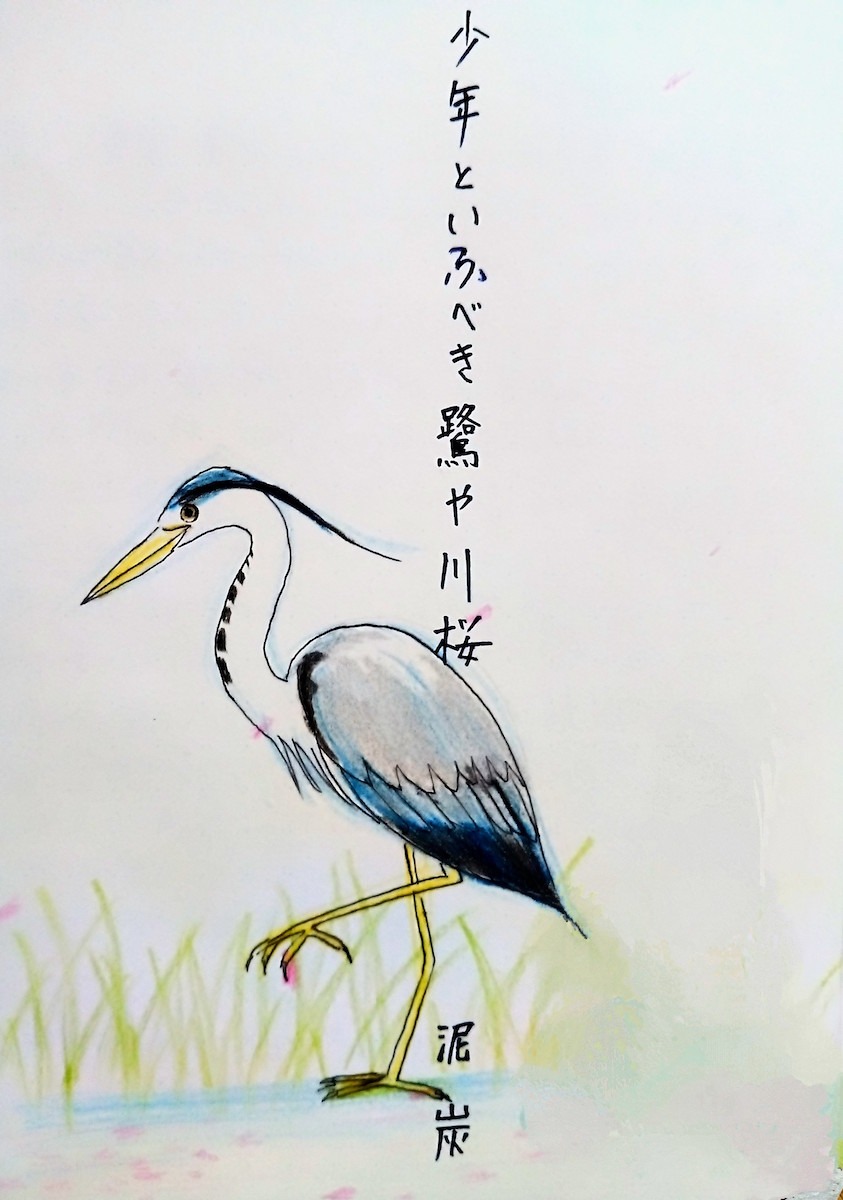 少年といふべき鷺や川桜
泥炭